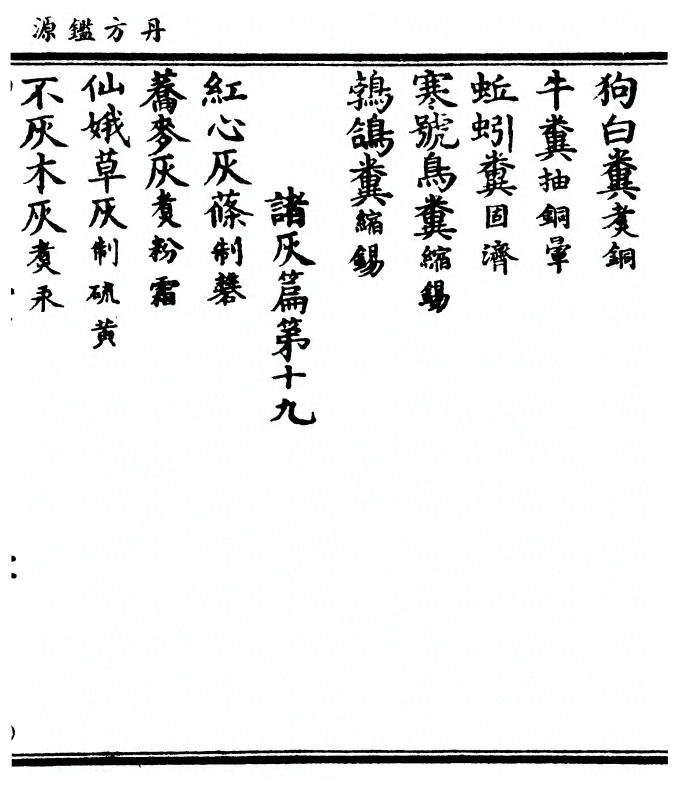 丹方鑑源
狗白糞煑銅
牛糞抽銅暈
蚯蚓糞固濟
寒號鳥糞縮錫
鵓鴿糞縮錫
諸灰篇第十九
紅心灰藋制礬
蕎麥灰煑粉霜
仙娥草灰制硫黃
不灰木灰煑汞